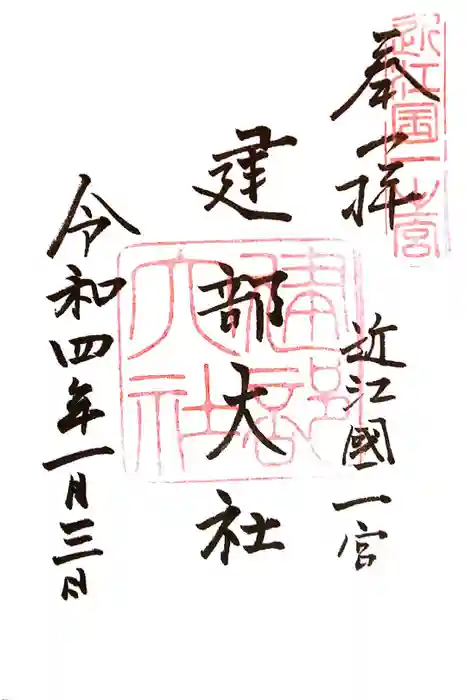 奉拝
近江國一宮
建部大社
令和四年一月三日
近江国一之宮
建部大社